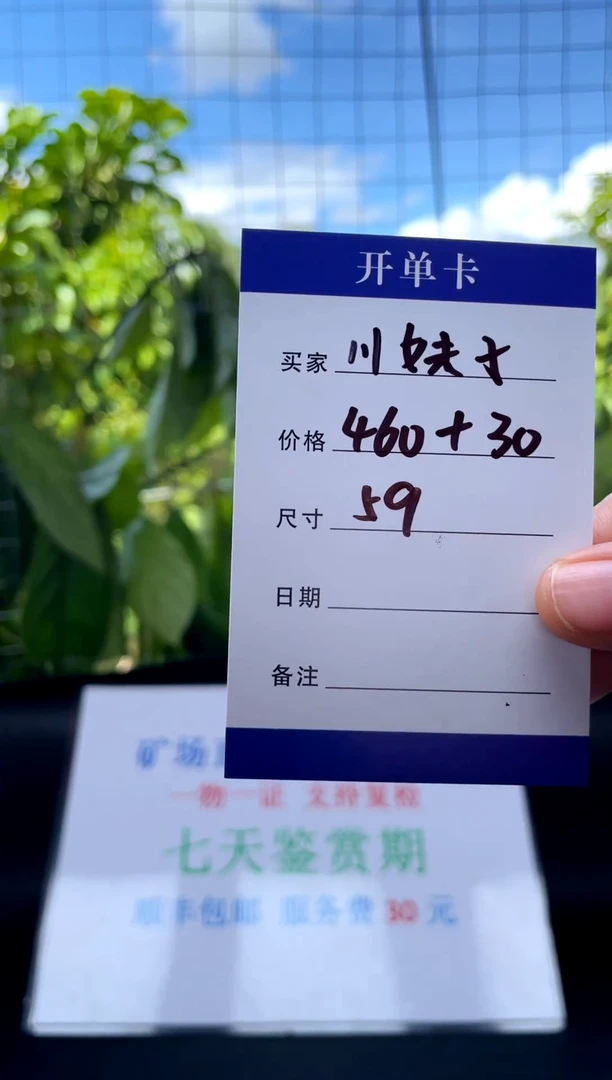 开单卡
买家 川妹子
价格 460+30
尺寸 59
日期
备注
矿场
一物一证 支持复检
七天鉴赏期
顺丰包邮 服务费30元